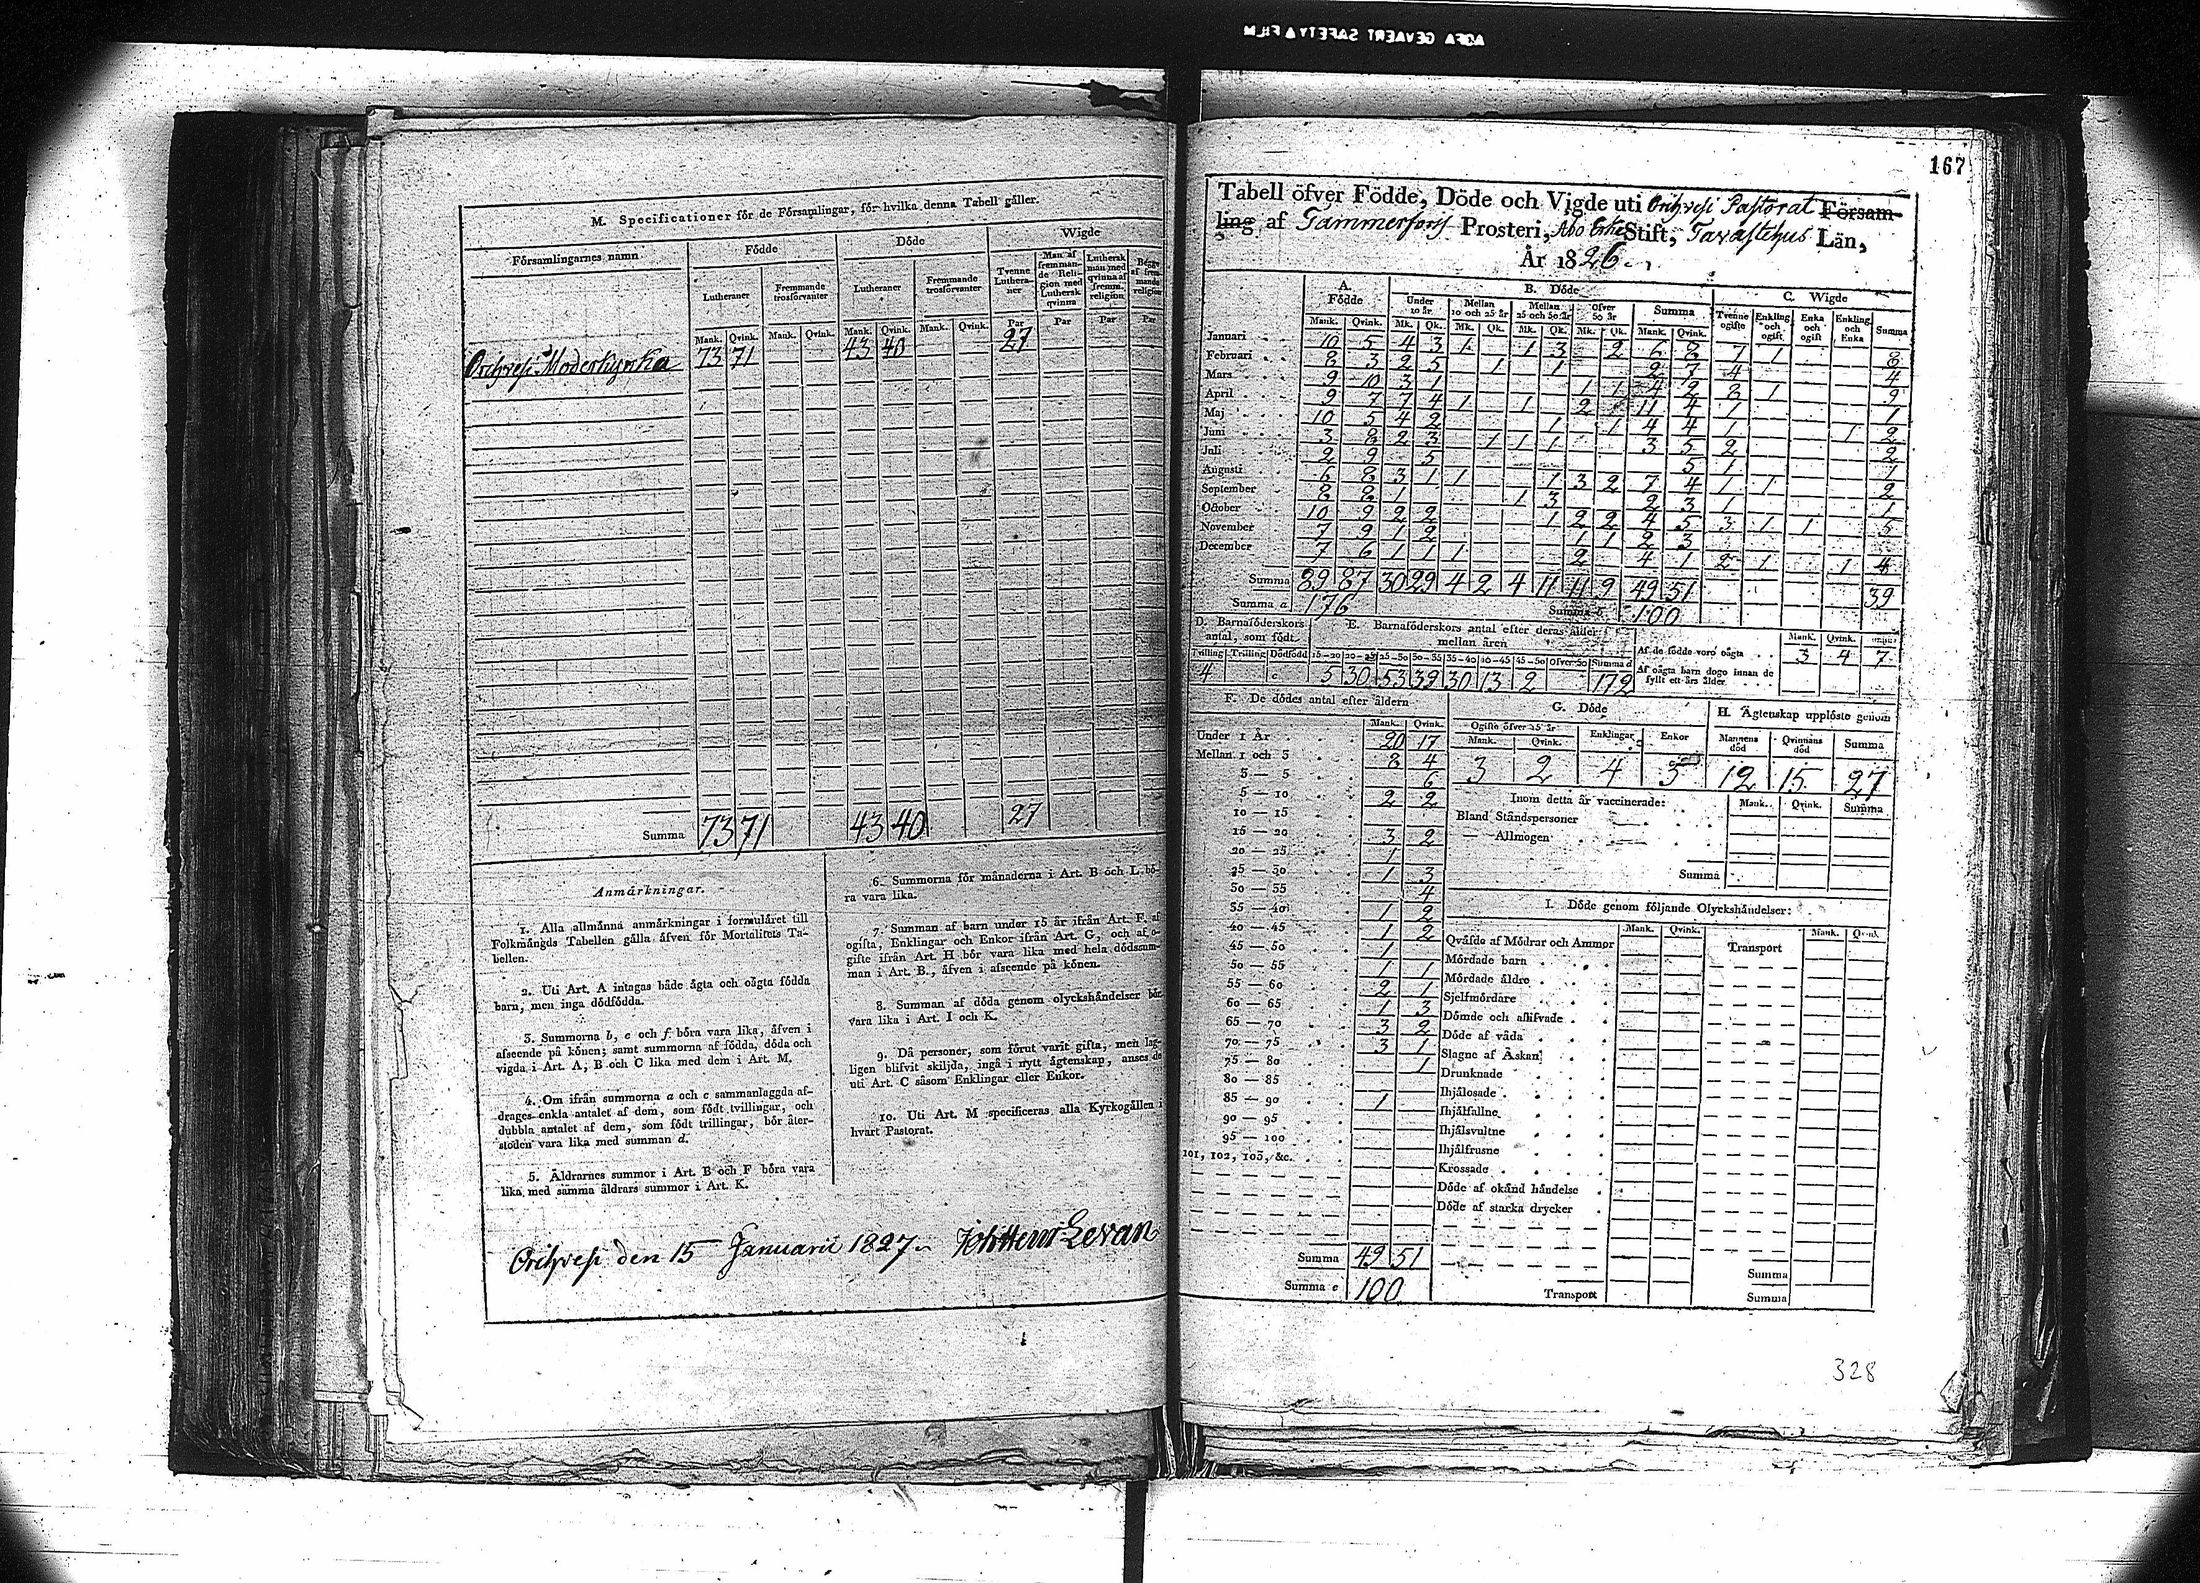 AGFA GEVAERT SAFETY FILM
M. Specificationer för de Församlingar, för hvilka denna Tabell gäller.
Församlingarnes namn
Födde
Döde
Wigde
Lutheraner
Fremmande trosförvanter
Lutheraner
Fremmande trosförvanter
Tvenne Lutheraner
Man af fremmande Religion med Luthersk qvinna
Luthersk man med qvinna af fremm. religion
Begge af fremmande religion
Mank. Qvink. Mank. Qvink. Mank. Qvink. Mank. Qvink. Par Par Par Par
Orihvesi Moderkyrka 73 71 43 40 27
Summa 73 71 43 40 27
Anmärkningar.
1. Alla allmänna anmärkningar i formuläret till
Folkmängds Tabellen gälla äfven för Mortalitets Ta-
bellen.
2. Uti Art. A intagas både ägta och oägta födda
barn, men inga dödfödda.
3. Summorna b, e och f böra vara lika, äfven i
afseende på könen; samt summorna af födda, döda och
vigda i Art. A, B och C lika med dem i Art. M.
4. Om ifrån summorna a och c sammanlaggda af-
drages enkla antalet af dem, som födt tvillingar, och
dubbla antalet af dem, som födt trillingar, bör åter-
stoden vara lika med summan d.
5. Åldrarnes summor i Art. B och F böra vara
lika med samma åldrars summor i Art. K.
6. Summorna för månaderna i Art. B och L bö-
ra vara lika.
7. Summan af barn under 15 år ifrån Art. F, af
ogifta, Enklingar och Enkor ifrån Art. G, och af
gifte ifrån Art. H bör vara lika med hela dödssum-
man i Art. B., äfven i afseende på könen.
8. Summan af döda genom olyckshändelser bör
vara lika i Art. I och K.
9. Då personer, som förut varit gifta, men lag-
ligen blifvit skiljda, ingå i nytt ägtenskap, anses de
uti Art. C såsom Enklingar eller Enkor.
10. Uti Art. M specificeras alla Kyrkogällen i
hvart Pastorat.
Orihvesi den 15 Januarii 1827. Levan
167
Tabell öfver Födde, Döde och Vigde uti Orihvesi Pastorat Försam-
ling af Tammerfors Prosteri, Åbo Erke Stift, Tavastehus Län,
År 1826.
A. Födde
B. Döde
C. Wigde
Under 10 år
Mellan 10 och 25 år
Mellan 25 och 50 år
Öfver 50 år
Summa
Tvenne ogifte
Enkling och ogift
Enka och ogift
Enkling och Enka
Summa
Mank. Qvink. Mk. Qk. Mk. Qk. Mk. Qk. Mk. Qk. Mank. Qvink.
Januari 10 5 4 3 1 1 3 2 6 8 7 1 8
Februari 8 3 2 5 1 1 2 7 4 4
Mars 9 10 3 1 1 1 4 2 8 1 9
April 9 7 7 4 1 1 2 11 4 1 1
Maj 10 5 4 2 1 1 4 4 1 1 2
Juni 3 8 2 3 1 1 1 3 5 2 2
Juli 2 9 5 5 1 1
Augusti 6 8 3 1 1 1 3 2 7 4 1 1 2
September 8 8 1 1 3 2 3 1 1
October 10 9 2 2 1 2 2 4 5 3 1 1 5
November 7 9 1 2 1 1 2 3
December 7 6 1 1 1 2 4 1 2 1 1 4
Summa 89 87 30 29 4 2 4 11 11 9 49 51 39
Summa a 176 Summa b 100
D. Barnaföderskors antal, som födt
Tvilling Trilling Dödfödd
4
E. Barnaföderskors antal efter deras ålder mellan åren
15-20 20-25 25-30 30-35 35-40 40-45 45-50 Öfver 50 Summa d
5 30 53 39 30 13 2 172
Mank. Qvink.
Af de födde voro oägta 3 4 7
Af oägta barn dogo innan de
fyllt ett års ålder
F. De dödes antal efter åldern
Mank. Qvink.
Under 1 År 20 17
Mellan 1 och 3 8 4
3 — 5 6
5 — 10 2 2
10 — 15
15 — 20 3 2
20 — 25 1
25 — 30 1 3
30 — 35 4
35 — 40 1 2
40 — 45 1 2
45 — 50 1
50 — 55 1 1
55 — 60 2 1
60 — 65 1 3
65 — 70 3 2
70 — 75 3 1
75 — 80 1
80 — 85
85 — 90 1
90 — 95
95 — 100
101, 102, 103, &c.
Summa 49 51
Summa e 100
G. Döde
Ogifte öfver 25 år
Mank. Qvink. Enklingar Enkor
3 2 4 5
H. Ägtenskap upplöste genom
Mannens död Qvinnans död Summa
12 15 27
Inom detta år vaccinerade: Mank. Qvink. Summa
Bland Ståndspersoner
— Allmogen
Summa
I. Döde genom följande Olyckshändelser:
Mank. Qvink. Transport Mank. Qvink.
Qväfde af Mödrar och Ammor
Mördade barn
Mördade äldre
Sjelfmördare
Dömde och aflifvade
Döde af våda
Slagne af Åskan
Drunknade
Ihjälosade
Ihjälfallne
Ihjälsvultne
Ihjälfrusne
Krossade
Döde af okänd händelse
Döde af starka drycker
Summa
Transport Summa
328